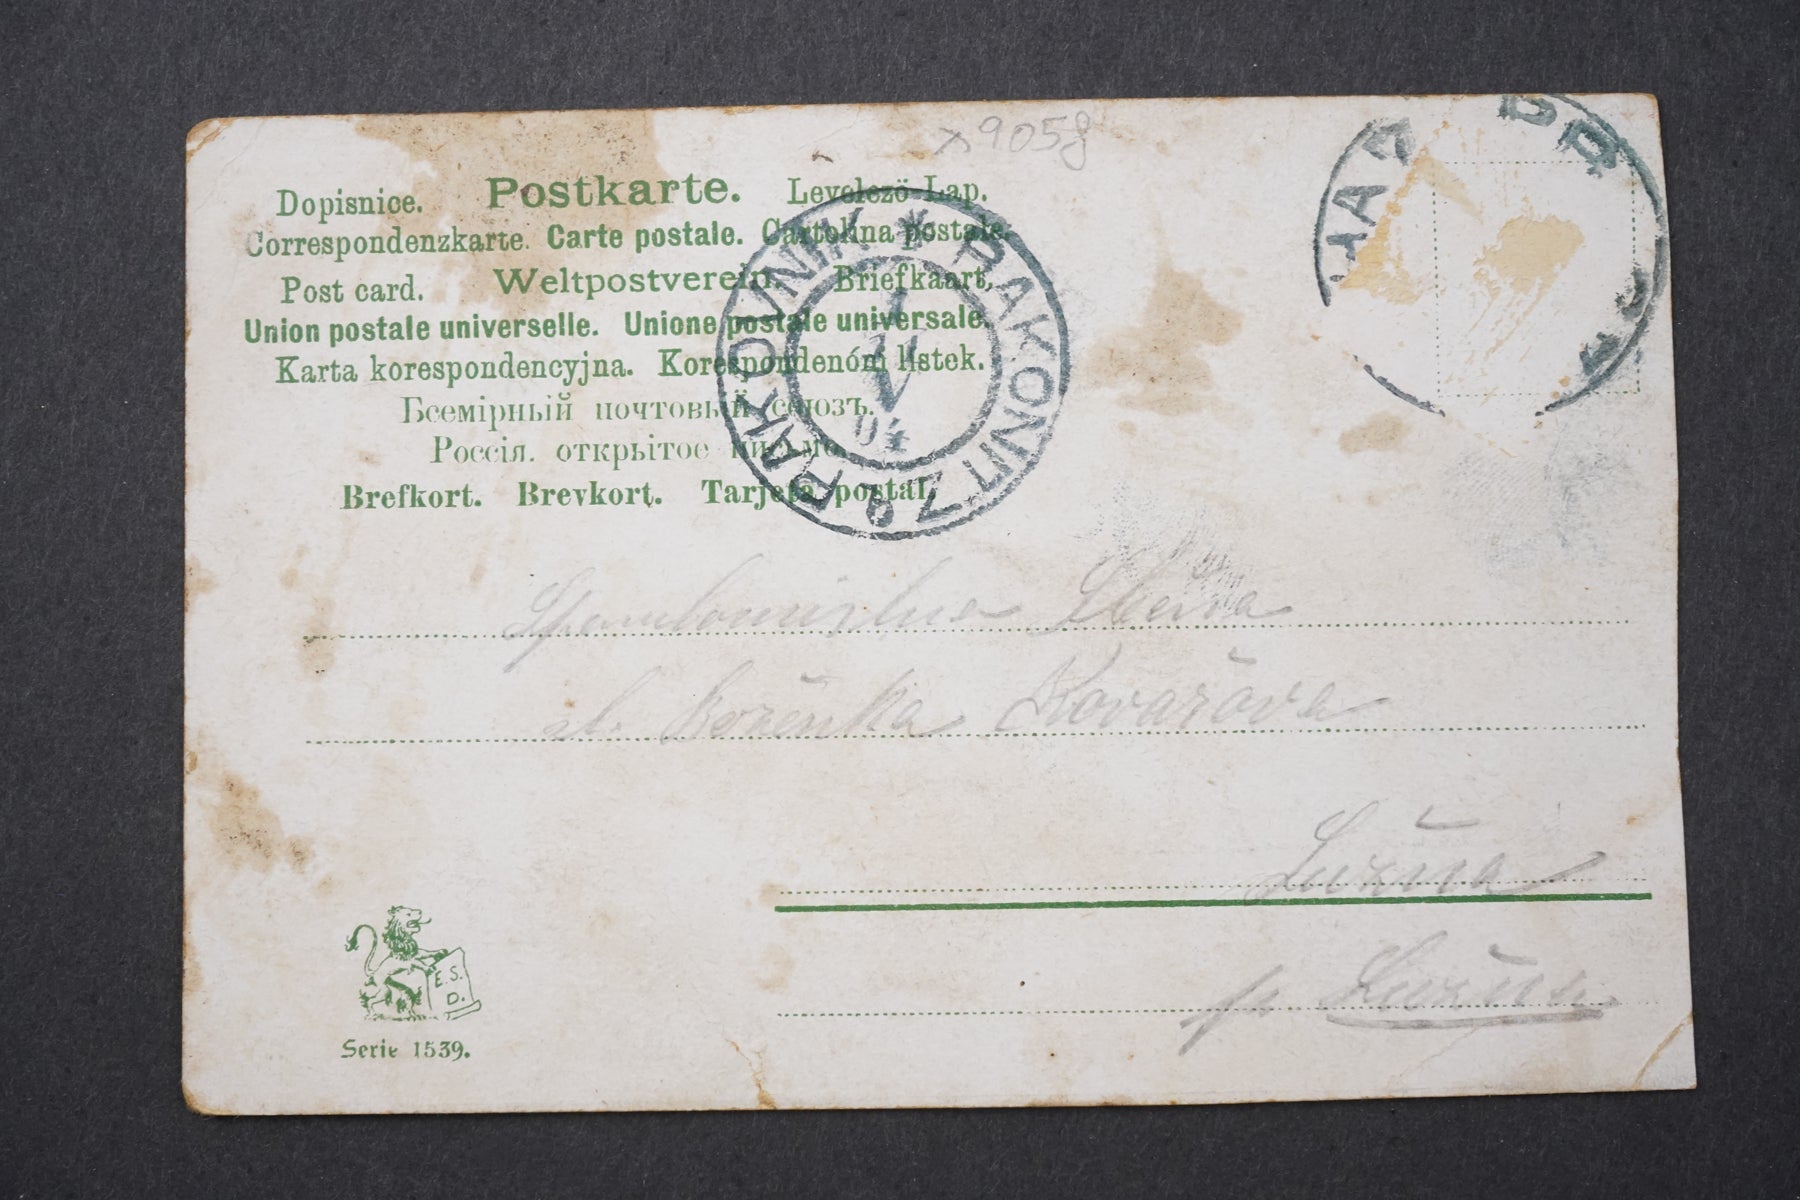 x9058
Dopisnice. Postkarte. Levelező Lap.
Correspondenzkarte. Carte postale. Cartolina postale.
Post card. Weltpostverein. Briefkaart.
Union postale universelle. Unione postale universale.
Karta korespondencyjna. Korespondenčni listek.
Всемірный почтовый союзъ.
Россія. открытое письмо.
Brefkort. Brevkort. Tarjeta postal.
RAKOVNÍK * RAKONITZ
04
Slečna
sl. Boženka Kovařova
Lužna
p. Lužna
E. S.
D.
Serie 1539.